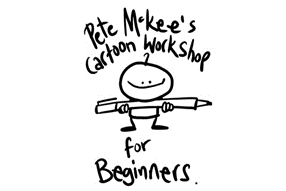 Pete McKee's
Cartoon Workshop
for
Beginners.